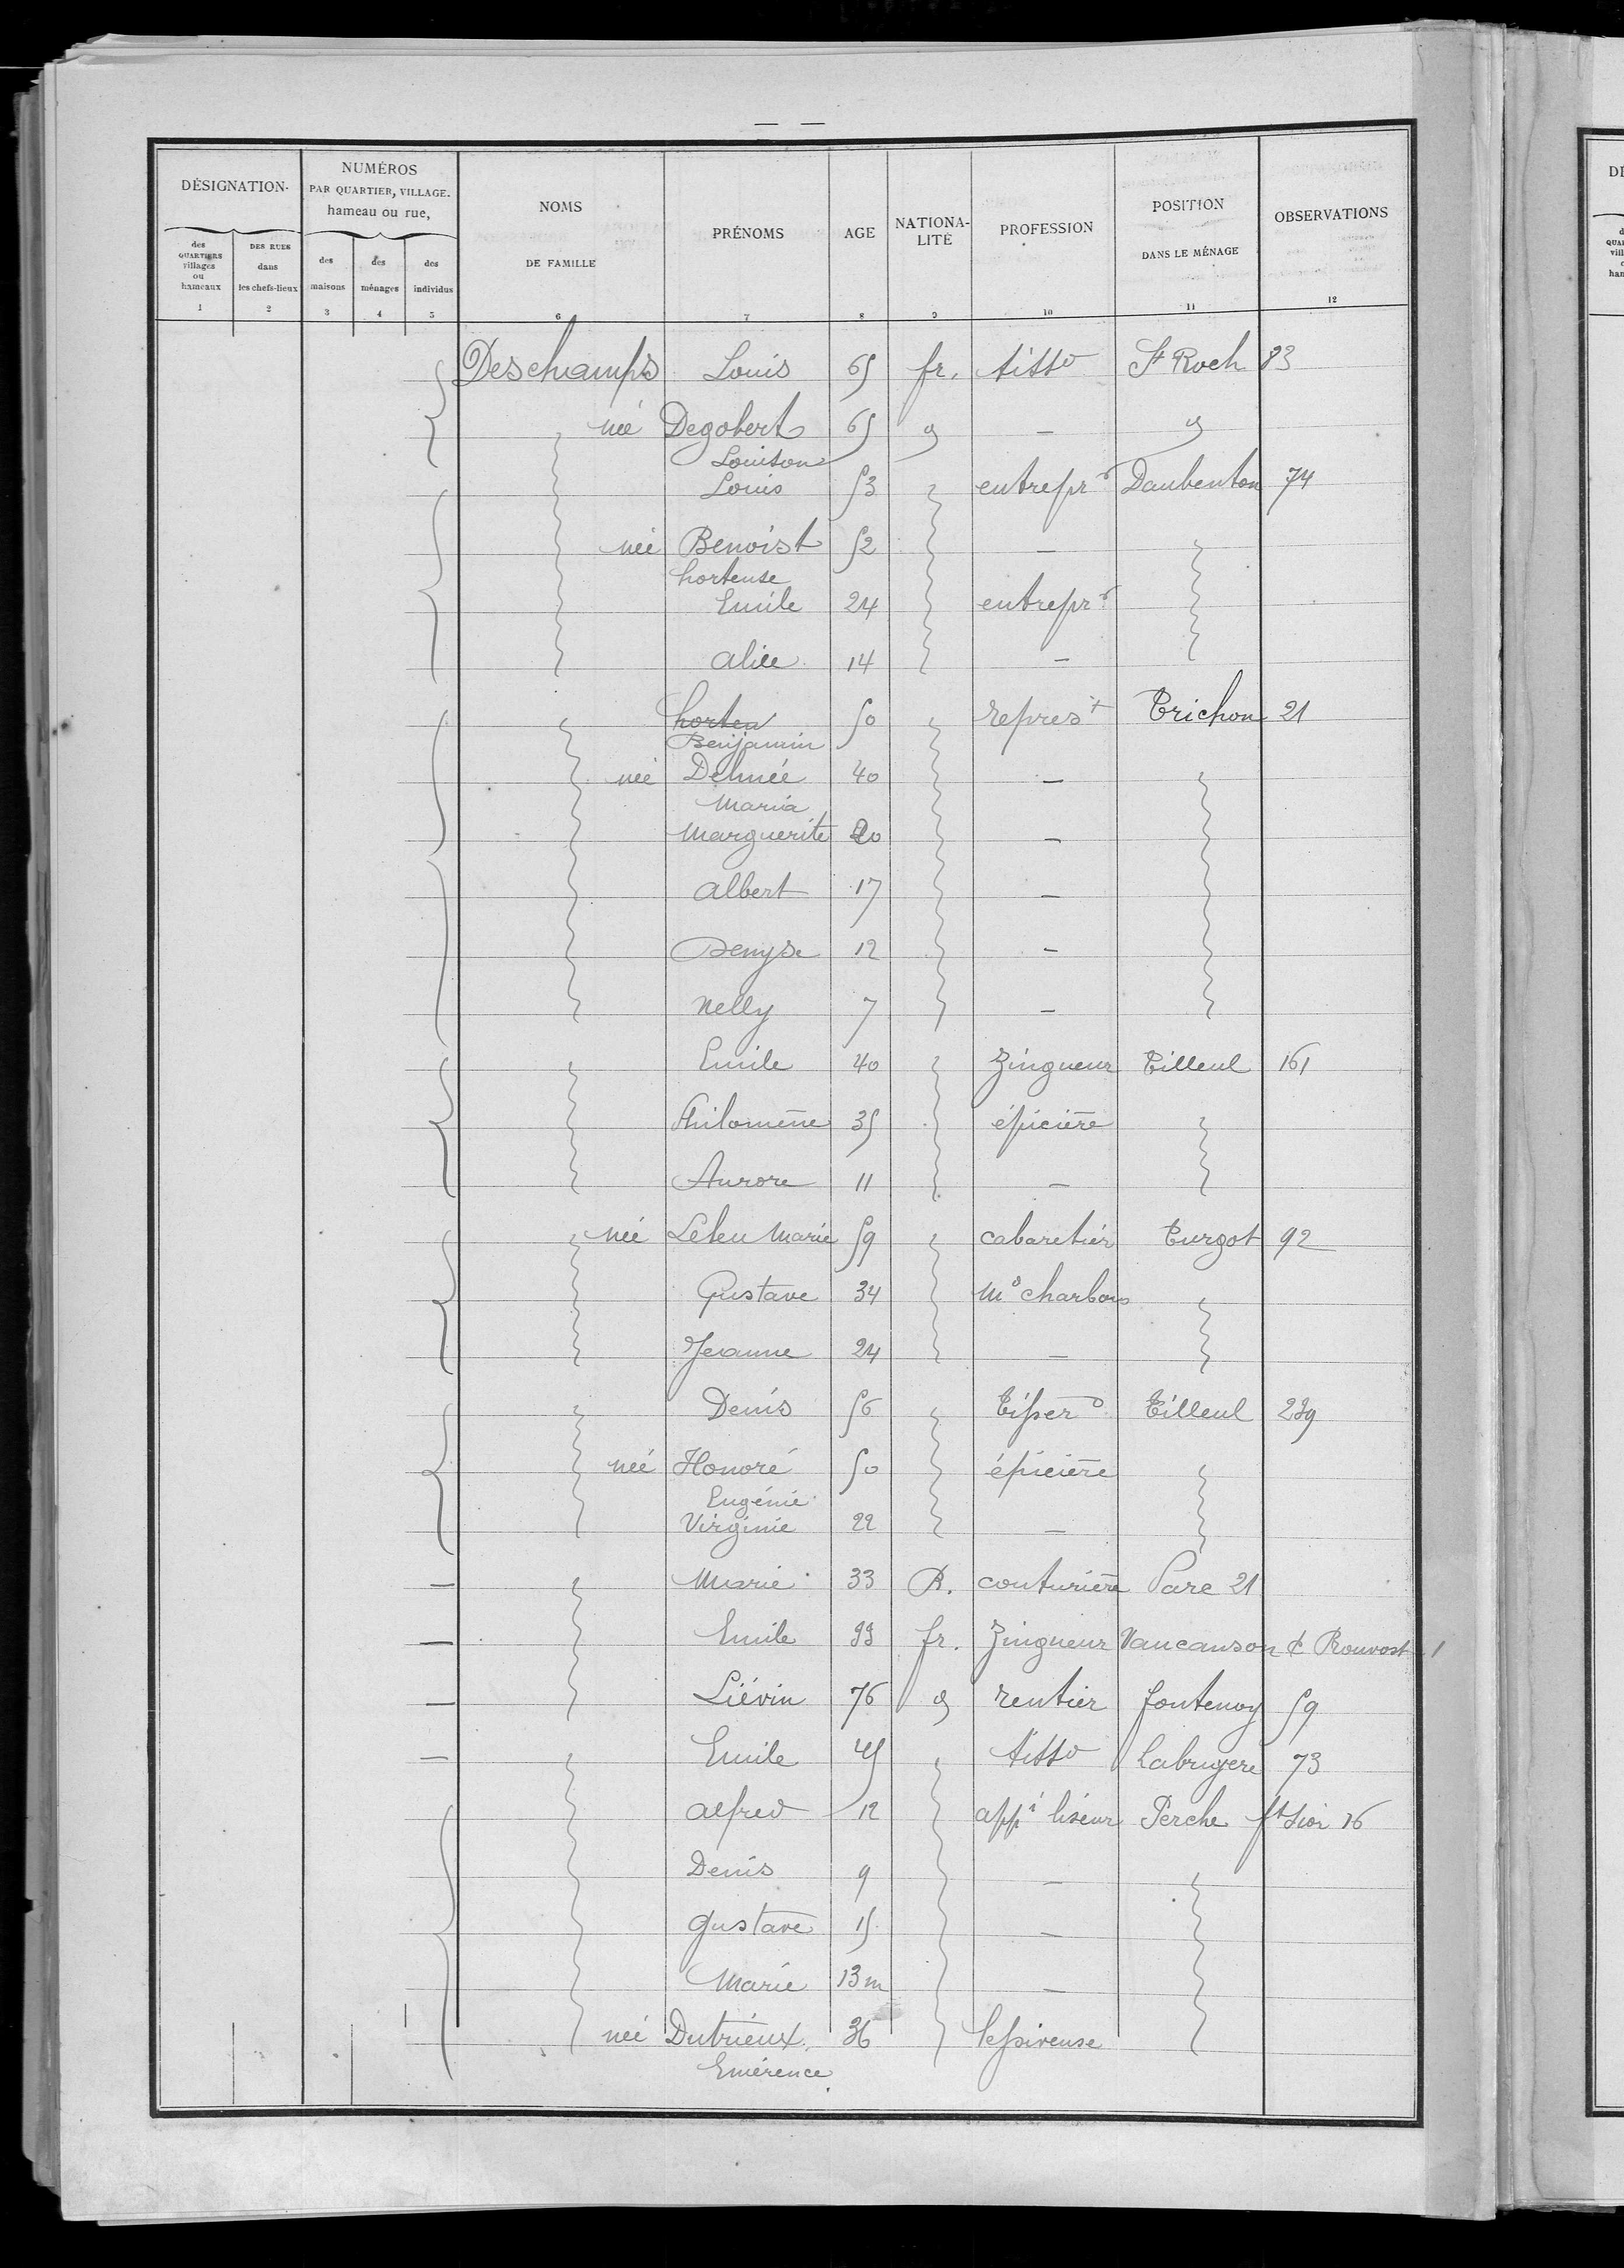 — —
DÉSIGNATION
NUMÉROS PAR QUARTIER, VILLAGE. hameau ou rue,
NOMS DE FAMILLE
PRÉNOMS
AGE
NATIONA-LITÉ
PROFESSION
POSITION DANS LE MÉNAGE
OBSERVATIONS
des QUARTIERS villages ou hameaux
DES RUES dans les chefs-lieux
des maisons
des ménages
des individus
1 2 3 4 5 6 7 8 9 10 11 12
Deschamps Louis 65 fr. tissd St Roch 83
née Degobert 65 —
Louison
Louis 53 entrepr Daubenton 74
née Benoist 52 —
hortense
Emile 24 entrepr
alice 14 —
horten 50 represt Trichon 21
Benjamin
née Delmée 40 —
Maria
Marguerite 20 —
albert 17 —
Denyse 12 —
Nelly 7 —
Emile 40 Zingueur Tilleul 161
Philomène 35 épicière
Aurore 11 —
née Leleu Marie 59 cabaretier Turgot 92
Gustave 34 Md charbons
Jeanne 24 —
Denis 56 Tisserd Tilleul 239
née Honoré 50 épicière
Eugénie
Virginie 22 —
— Marie 33 B. couturière Parc 21
— Emile 33 fr. Zingueur Vaucanson & Prouvost 1
— Liévin 76 rentier fontenoy 59
— Emile 45 tissd Labruyere 73
alfred 12 appi liseur Perche ft 16
Denis 9 —
gustave 15 —
Marie 13 m —
née Dutrieux 36 lessiveuse
Emérence